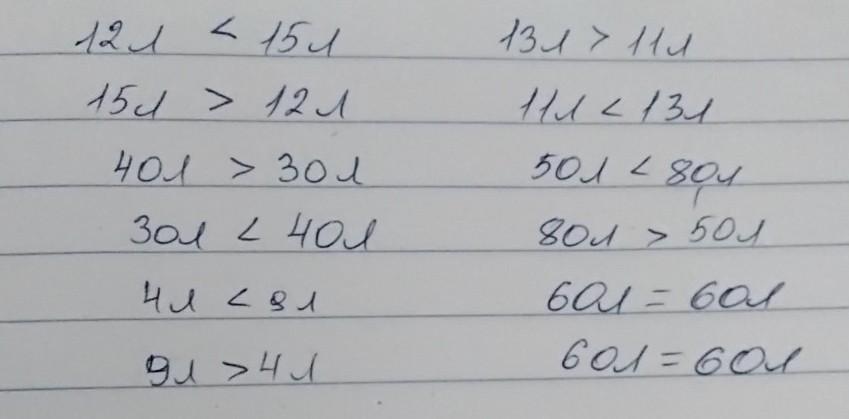 12л < 15л 13л > 11л
15л > 12л 11л < 13л
40л > 30л 50л < 80л
30л < 40л 80л > 50л
4л < 9л 60л = 60л
9л > 4л 60л = 60л